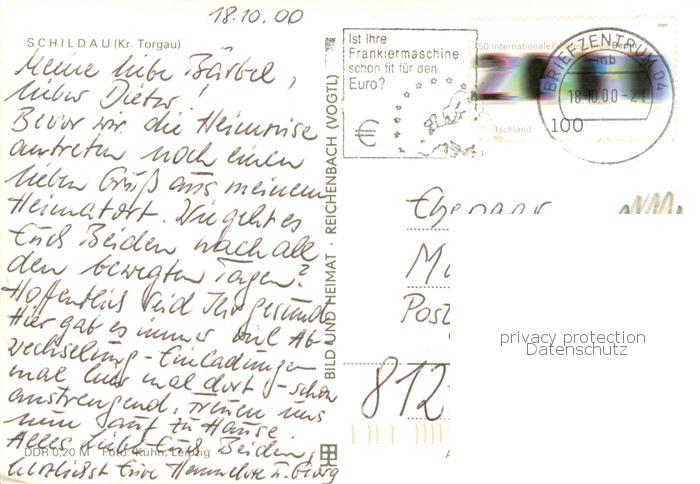 18.10.00
SCHILDAU (Kr. Torgau)
Meine liebe Bärbel,
lieber Dieter!
Bevor wir die Heimreise
antreten noch einen
lieben Gruß aus meinem
Heimatort. Wie geht es
Euch Beiden nach all
den bewegten Tagen?
Hoffentlich seid Ihr gesund.
Hier gab es immer viel Ab-
wechselung - Einladungen
mal hier mal dort - schon
anstrengend, freuen uns
nun auf zu Hause
Alles Liebe Euch Beiden,
herzlichst Eure Hannelore u. Georg
DDR 0,20 M Foto: Kühn, Leipzig
BILD UND HEIMAT · REICHENBACH (VOGTL)
Ist Ihre
Frankiermaschine
schon fit für den
Euro?
€
50. Internationale
2000
100
BRIEFZENTRUM 04
mb
18.10.00-21
Ehepaar
M
Post
812
privacy protection
Datenschutz